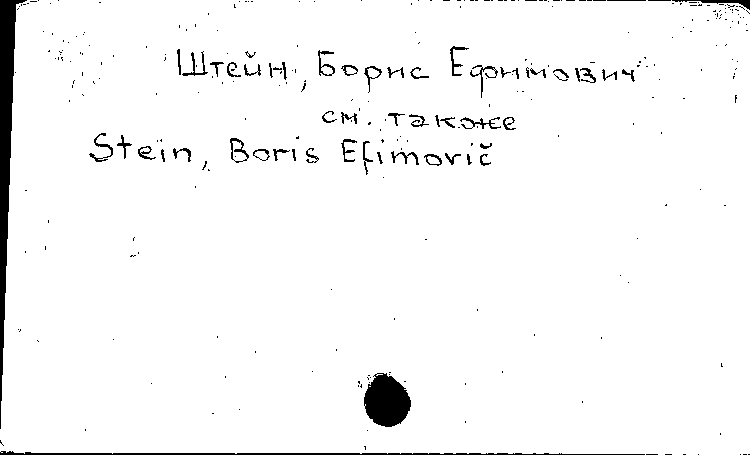 Штейн, Борис Ефимович
см. также
Stein, Boris Efimovič